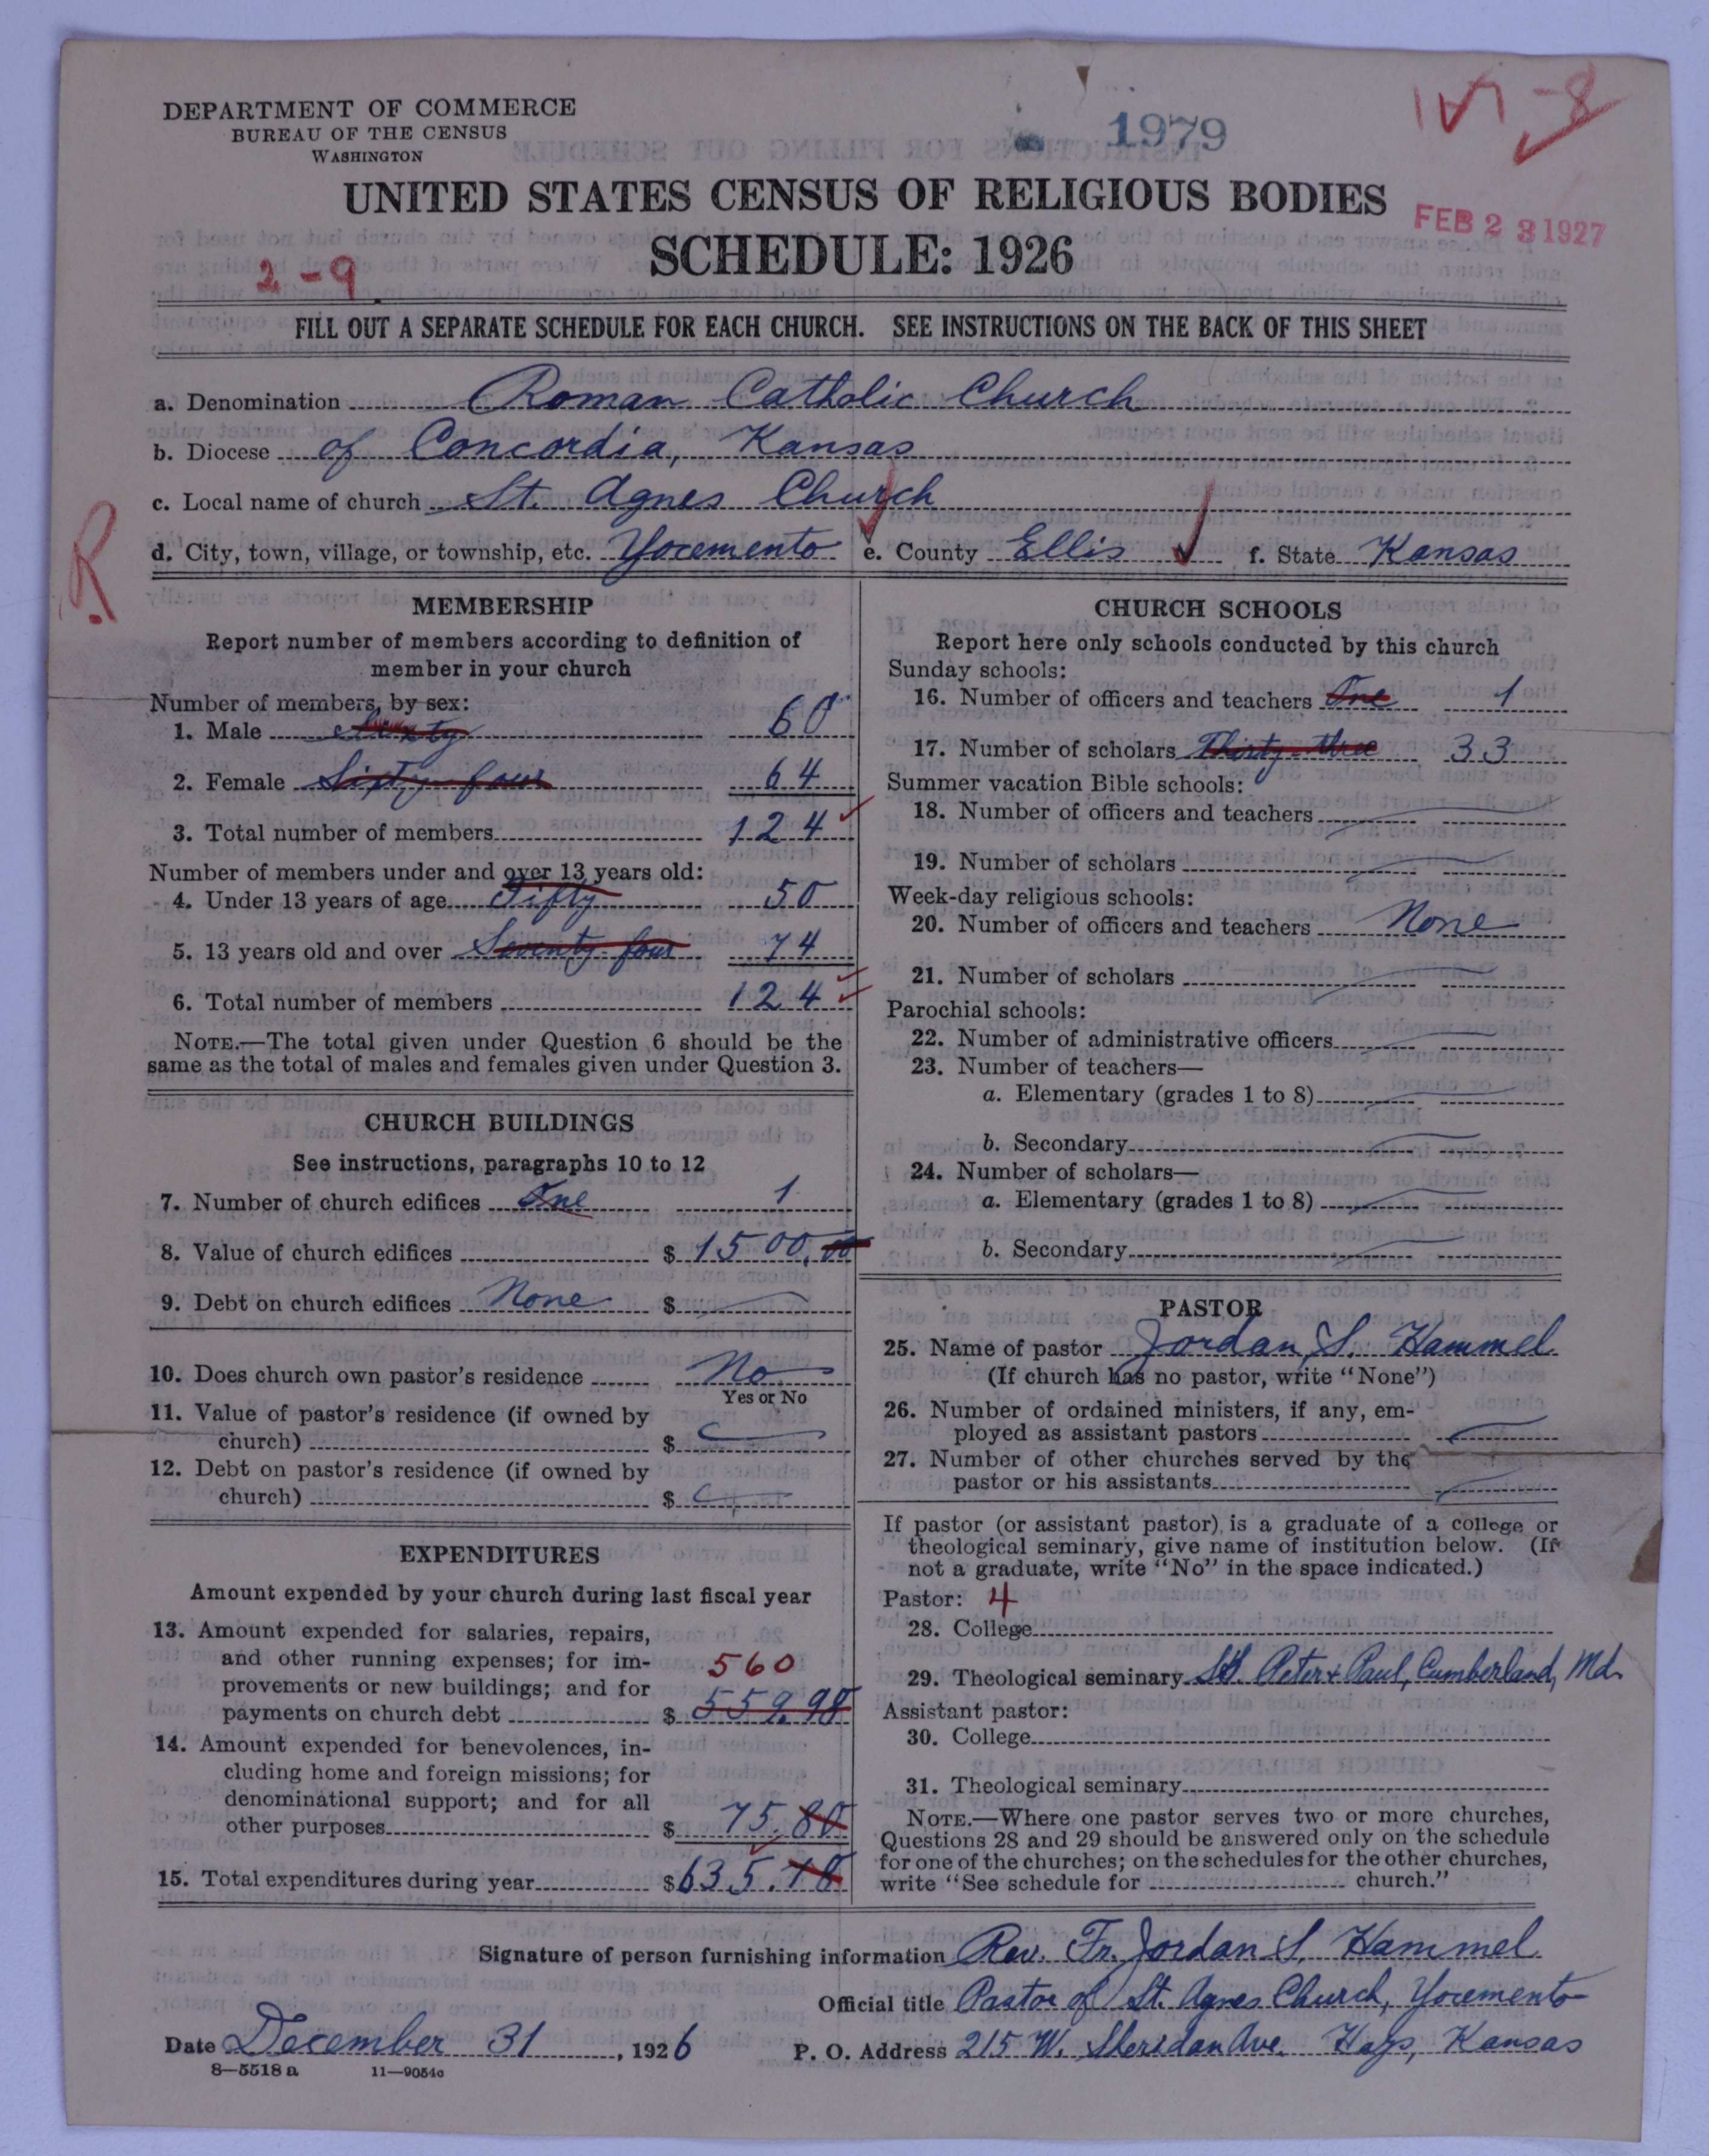 DEPARTMENT OF COMMERCE
BUREAU OF THE CENSUS
WASHINGTON
1979
UNITED STATES CENSUS OF RELIGIOUS BODIES
SCHEDULE: 1926
FEB 23 1927
2-9
FILL OUT A SEPARATE SCHEDULE FOR EACH CHURCH. SEE INSTRUCTIONS ON THE BACK OF THIS SHEET
a. Denomination Roman Catholic Church
b. Diocese of Concordia, Kansas
c. Local name of church St. Agnes Church
d. City, town, village, or township, etc. Yocemento e. County Ellis f. State Kansas
R
MEMBERSHIP
Report number of members according to definition of
member in your church
Number of members, by sex:
1. Male Sixty 60
2. Female Sixty four 64
3. Total number of members 124
Number of members under and over 13 years old:
4. Under 13 years of age Fifty 50
5. 13 years old and over Seventy four 74
6. Total number of members 124
NOTE.—The total given under Question 6 should be the
same as the total of males and females given under Question 3.
CHURCH BUILDINGS
See instructions, paragraphs 10 to 12
7. Number of church edifices One 1
8. Value of church edifices $ 1500.00
9. Debt on church edifices None $
10. Does church own pastor's residence No
Yes or No
11. Value of pastor's residence (if owned by
church) $
12. Debt on pastor's residence (if owned by
church) $
EXPENDITURES
Amount expended by your church during last fiscal year
13. Amount expended for salaries, repairs,
and other running expenses; for im-
560
provements or new buildings; and for
payments on church debt $ 559.98
14. Amount expended for benevolences, in-
cluding home and foreign missions; for
denominational support; and for all
other purposes $ 75.80
15. Total expenditures during year $635.78
CHURCH SCHOOLS
Report here only schools conducted by this church
Sunday schools:
16. Number of officers and teachers One 1
17. Number of scholars Thirty-three 33
Summer vacation Bible schools:
18. Number of officers and teachers
19. Number of scholars
Week-day religious schools:
20. Number of officers and teachers None
21. Number of scholars
Parochial schools:
22. Number of administrative officers
23. Number of teachers—
a. Elementary (grades 1 to 8)
b. Secondary
24. Number of scholars—
a. Elementary (grades 1 to 8)
b. Secondary
PASTOR
25. Name of pastor Jordan S. Hammel
(If church has no pastor, write "None")
26. Number of ordained ministers, if any, em-
ployed as assistant pastors
27. Number of other churches served by the
pastor or his assistants
If pastor (or assistant pastor) is a graduate of a college or
theological seminary, give name of institution below. (If
not a graduate, write "No" in the space indicated.)
Pastor: 4
28. College
29. Theological seminary SS. Peter & Paul, Cumberland, Md.
Assistant pastor:
30. College
31. Theological seminary
NOTE.—Where one pastor serves two or more churches,
Questions 28 and 29 should be answered only on the schedule
for one of the churches; on the schedules for the other churches,
write "See schedule for church."
Signature of person furnishing information Rev. Fr. Jordan S. Hammel
Official title Pastor of St. Agnes Church, Yocemento
Date December 31, 1926 P. O. Address 215 W. Sheridan Ave. Hays, Kansas
8—5518 a 11—9054c